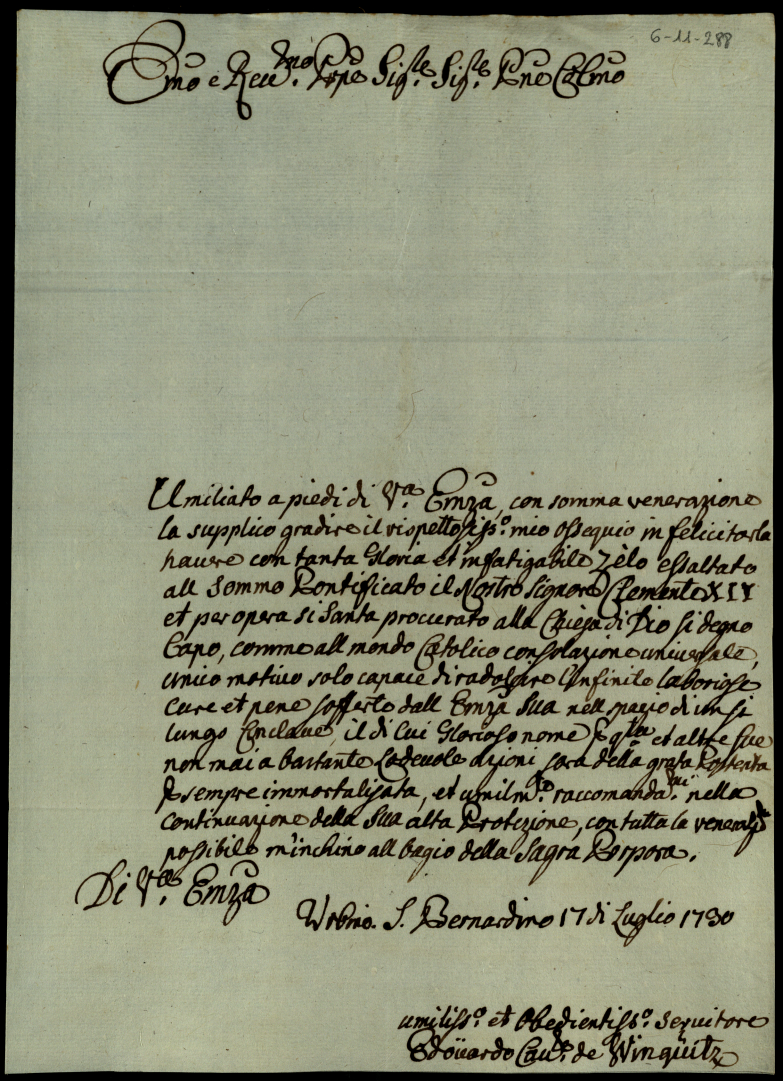 6-11-288
Emo e Reu.mo Prpe Sig.re Sig.re Pne Colmo
Umiliato a piedi di V.a Emza, con somma venerazione
la supplico gradire il rispettosiss.o mio ossequio in felicitarla
hauere con tanta Gloria et infatigabile Zèlo essaltato
all Sommo Pontificato il Nostro Signore Clemente XII
et per opera si Santa proccurato alla Chiesa di Dio si degno
Capo, comme all mondo Catolico consolazione uniuersale,
unico motiuo solo capace di radolcire l'infinite laboriose
cure et pene sofferte dall Emza Sua nell spazio di un si
lungo Conclaue, il di cui Glorioso nome p q.ta et altre sue
non mai a bastante Lodeuole azioni sara della grata Posterita
p sempre immortalizata, et umilm.e raccomanda.mi nella
continuazione della Sua alta Protezione, con tutta la veneraz.e
possibile m'inchino all bagio della Sagra Porpora.
Di V.a Emza
Urbino. S. Bernardino 17 di Luglio 1730
umiliss.o et Obedientiss.o seruitore
Edoüardo Cau.e de Wingüitz